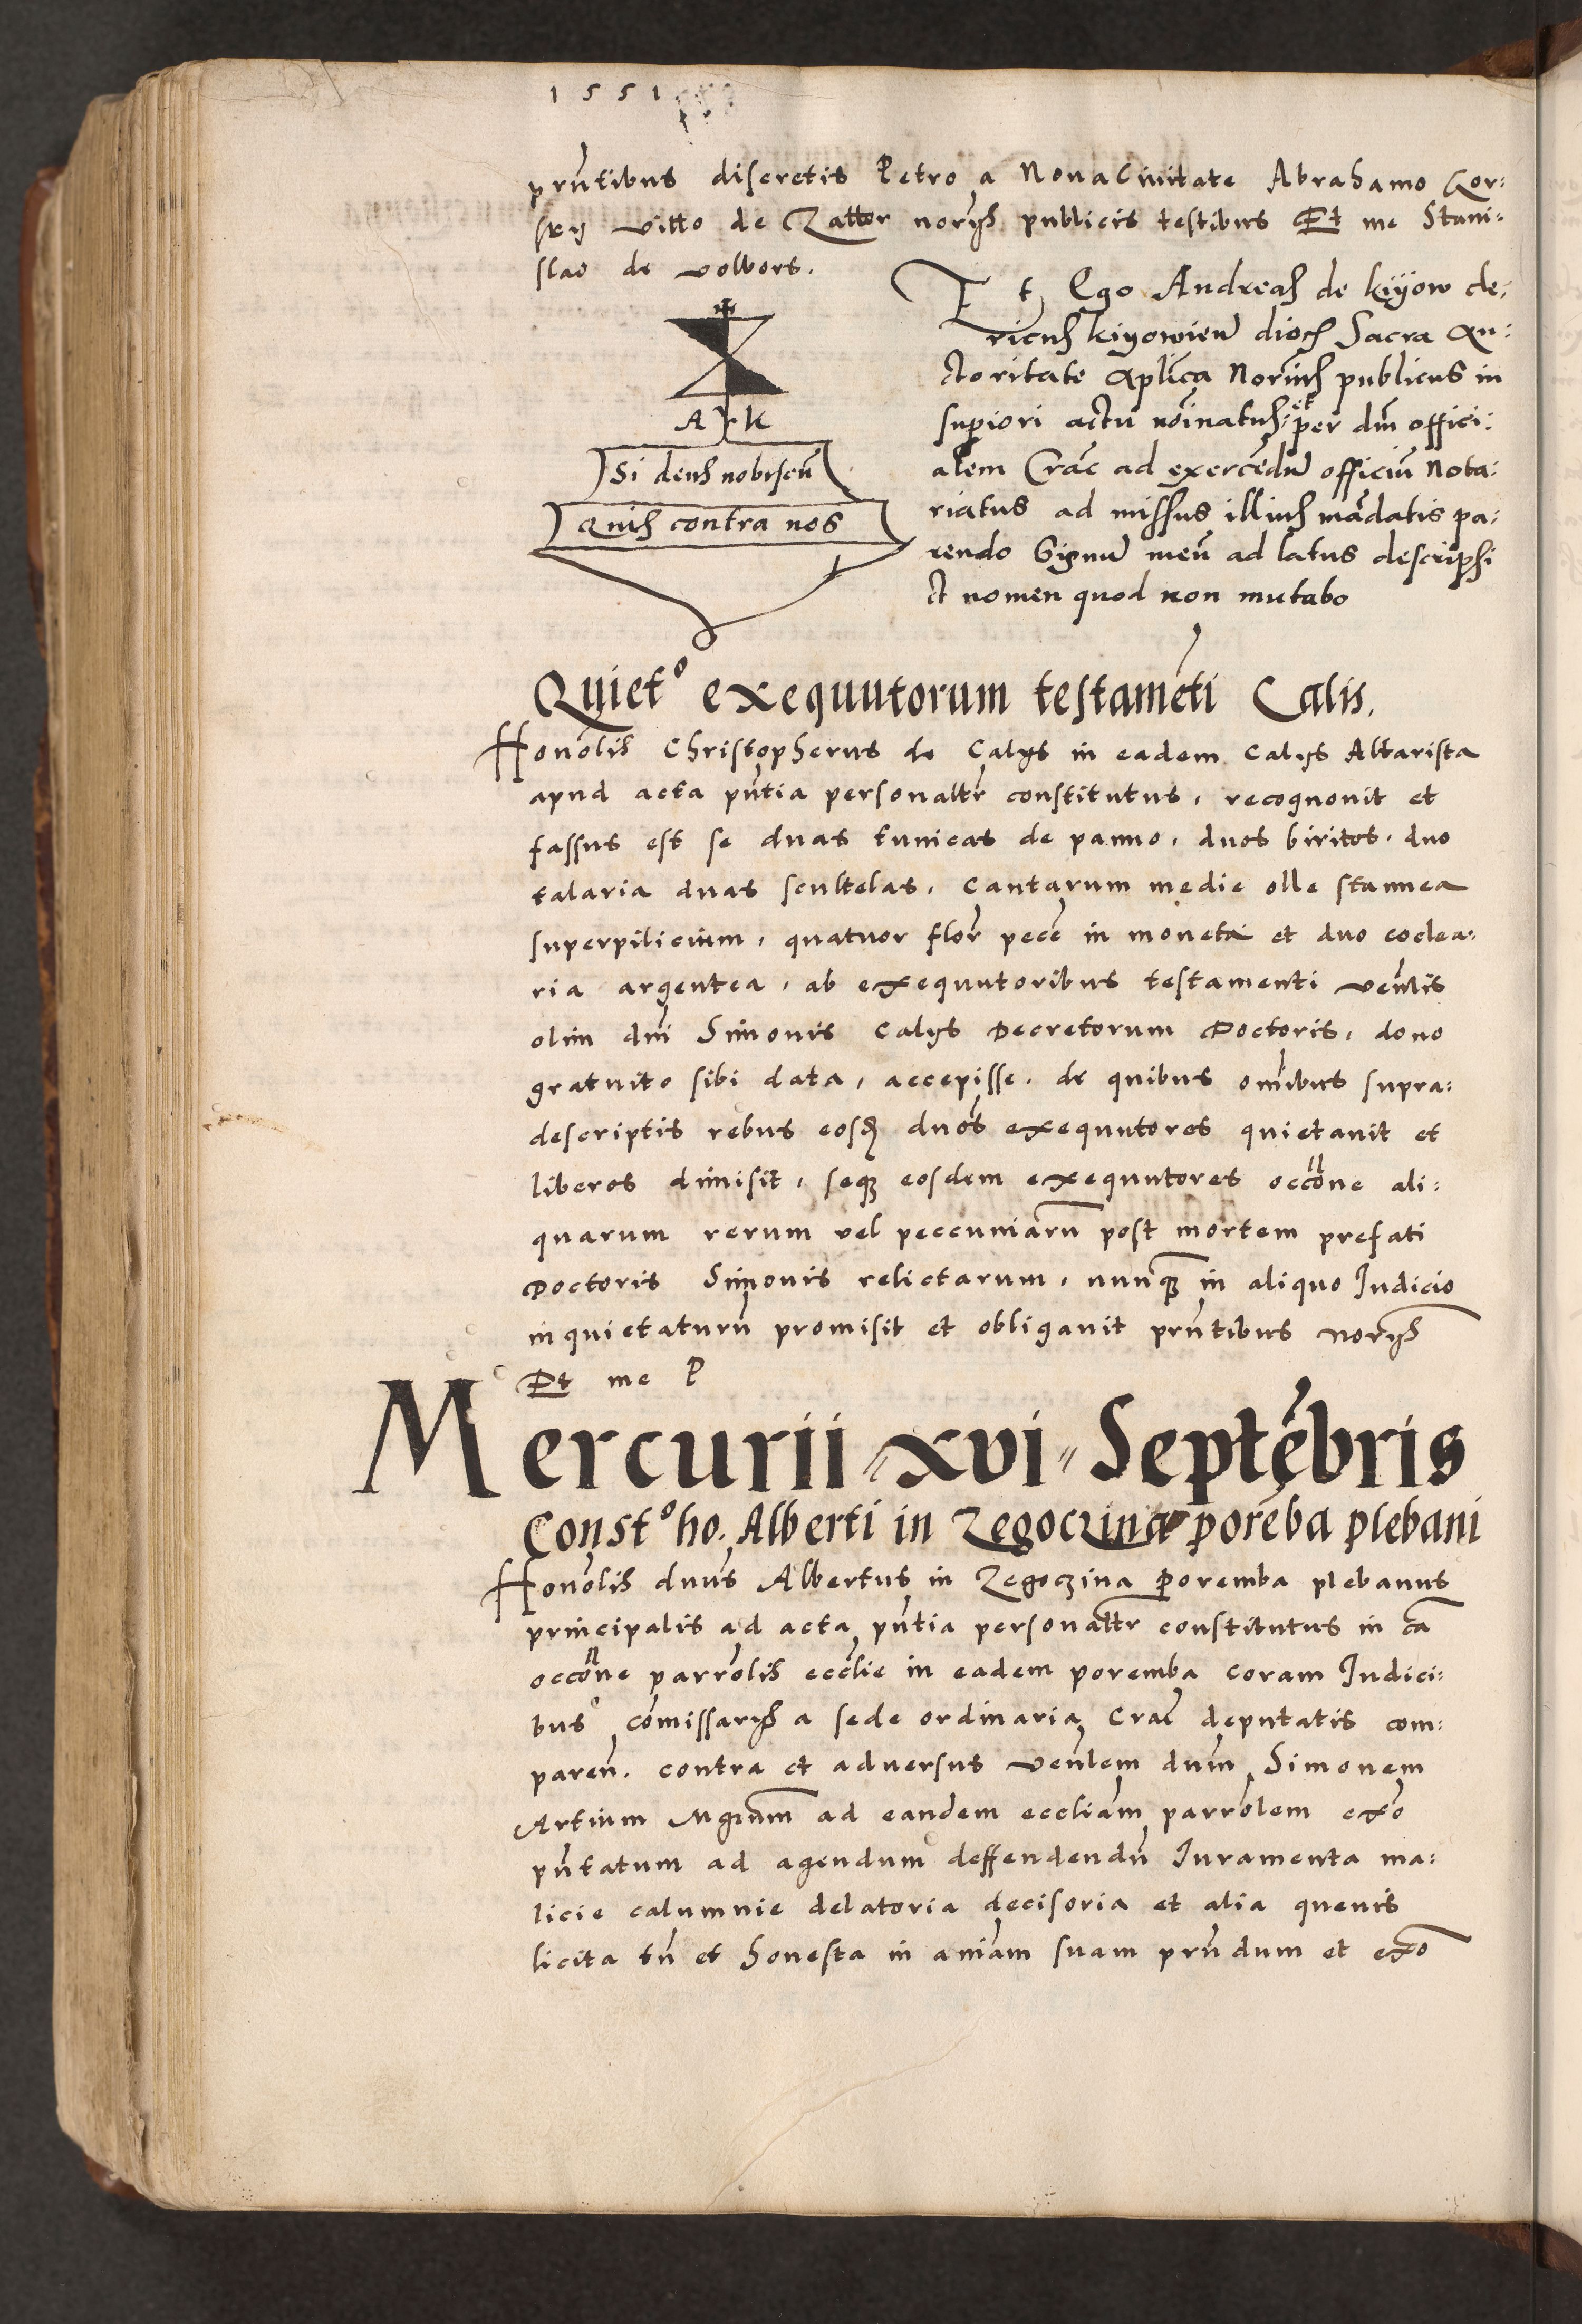 1551
prn̄tibus discretis Petro a Nova Civitate Abrahamo Gor:
sky vitto de Zattor norijs publicis testibus Et me Stani:
slao de volbors.
Et Ego Andreas de kijow cle:
ricus kiyowien̄ dioc̄ Sacra au:
ctoritate aplīca Norius publicus in
superiori actu nōinatus: et per dm̄ offici:
alem Crac̄ ad exercēdum officiū nota:
riatus ad missus illius mādatis pa:
rendo Signum meū ad latus descripsi
et nomen quod non mutabo
A K
Si deus nobiscū
Quis contra nos
Quietº exequutorum testamēti Calis.
Honōlis Christopherus de Calijs in eadem Calijs Altarista
apud acta pn̄tia personaltr̄ constitutus, recognovit et
fassus est se duas tunicas de panno, duos biritos, duo
talaria duas scultelas, Cantarum medie olle stannea
superpilicium, quatuor flor̄ pecc̄ in moneta et duo coclea:
ria argentea, ab exequutoribus testamenti ven̄lis
olim dn̄i Simonis Calijs Decretorum Doctoris, dono
gratuito sibi data, accepisse, de quibus om̄ibus supra:
descriptis rebus eosd̄ dn̄os exequutores quietavit et
liberos dimisit, seqz eosdem exequutores occōne ali:
quarum rerum vel peccuniarū post mortem prefati
Doctoris Simonis relictarum, nunq̄z in aliquo Judicio
inquietaturū promisit et obligavit prn̄tibus norijs
Et me P
Mercurii xvi Septēbris
Constº ho. Alberti in Zegoczina porēba plebani
Honōlis dn̄us Albertus in Zegoczina Poremba plebanus
principalis ad acta pn̄tia personaltr̄ constitutus in cā
occōne parrōlis eccl̄ie in eadem poremba coram Judici:
bus cōmissarijs a sede ordinaria Crac̄ deputatis com:
paren̄. contra et adversus ven̄lem dn̄um Simonem
Artium Mgr̄um ad eandem eccl̄iam parrōlem exō
pn̄tatum ad agendum deffendendū Juramenta ma:
licie calumnie delatoria decisoria et alia quevis
licita tn̄ et honesta in aniām suam prn̄dum et exō